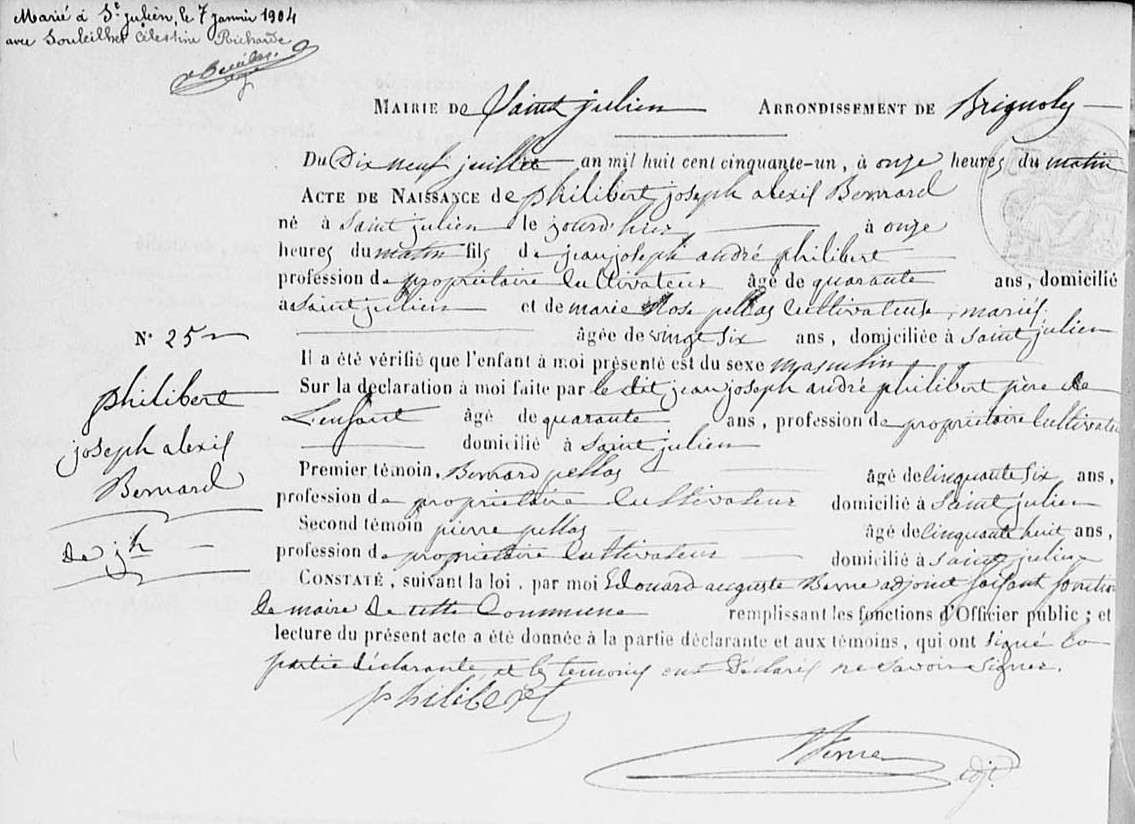 Marié à St Julien, le 7 janvier 1904
avec Souleilhet Célestine Richarde
MAIRIE De Saint julien ARRONDISSEMENT DE Brignoles
Du Dix neuf juillet an mil huit cent cinquante-un, à onze heures du matin
ACTE DE NAISSANCE de philibert joseph alexis Bernard
né à Saint julien le jourd'hui à onze
heures du matin fils de jean joseph andré philibert
profession de propriétaire Cultivateur âgé de quarante ans, domicilié
à Saint jullien et de marie Rose pellas Cultivateuse, mariés
âgée de vingt six ans, domiciliée à Saint julien
Il a été vérifié que l'enfant à moi présenté est du sexe masculin
Sur la déclaration à moi faite par le dit jean joseph andré philibert père de
L'enfant âgé de quarante ans, profession de propriétaire Cultivateur
domicilié à Saint julien
Premier témoin, Bernard pellas âgé de Cinquante six ans,
profession de propriétaire Cultivateur domicilié à Saint julien
Second témoin pierre pellas âgé de Cinquante huit ans,
profession de propriétaire Cultivateur domicilié à Saint julien
CONSTATÉ, suivant la loi, par moi Edouard auguste Verne adjoint faisant fonction
De maire De cette Commune remplissant les fonctions d'Officier public; et
lecture du présent acte a été donnée à la partie déclarante et aux témoins, qui ont signé la
partie déclarante, et les temoins ont Déclaré ne savoir signer.
philibert
Verne adjt
N° 25
philibert
joseph alexis
Bernard